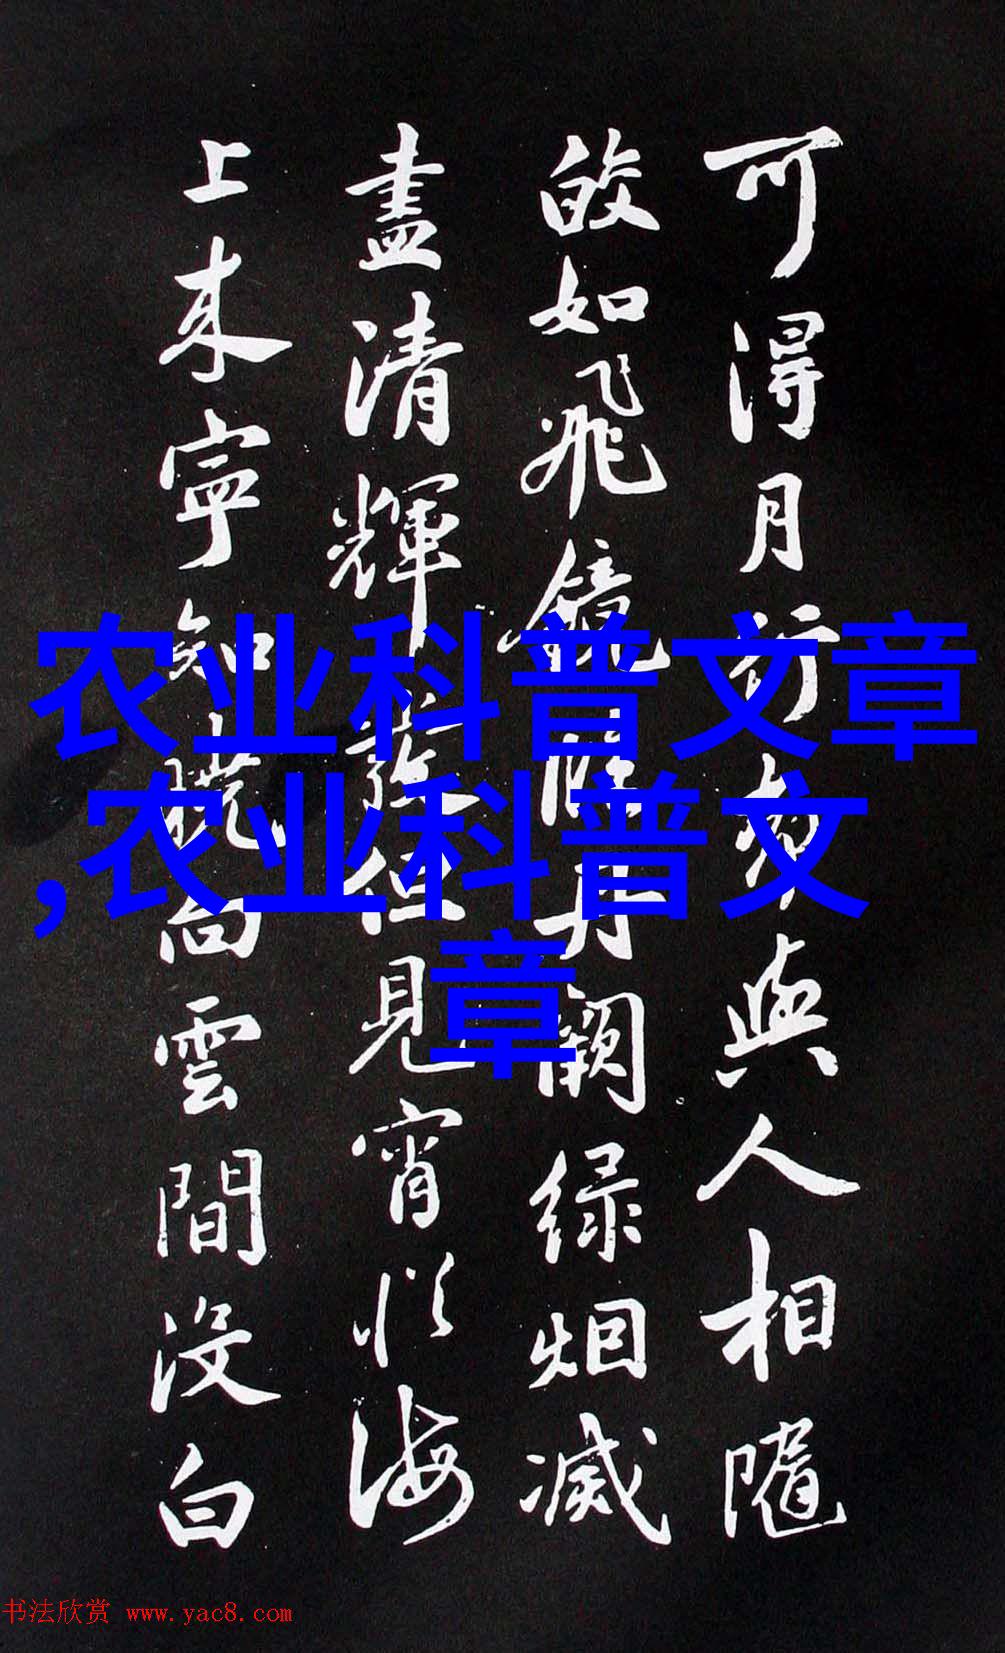 可得月行却與人相隨
皎如飛鏡臨丹闕绿烟滅
盡清輝發但見宵從海
上来寧知曉向雲間没白
农业科普文章
,农业科普文
章
书法欣赏 www.yac8.com